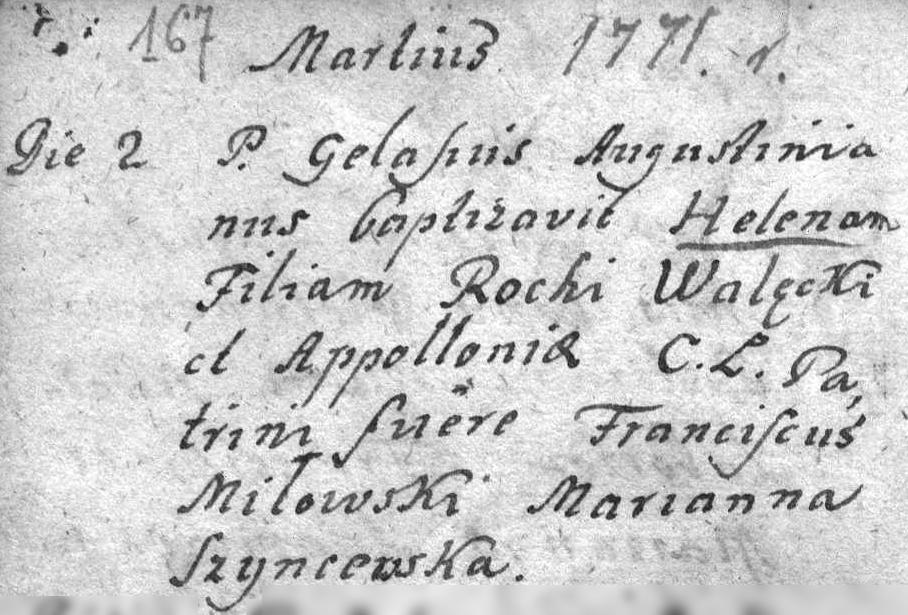 167 Martius 1771. r.
Die 2 P. Gelasius Augustinia
nus baptizavit Helenam
Filiam Rochi Walęcki
et Appolloniæ C.L. Pa,
trini fuëre Franciscus
Miłowski Marianna
Szyncewska.